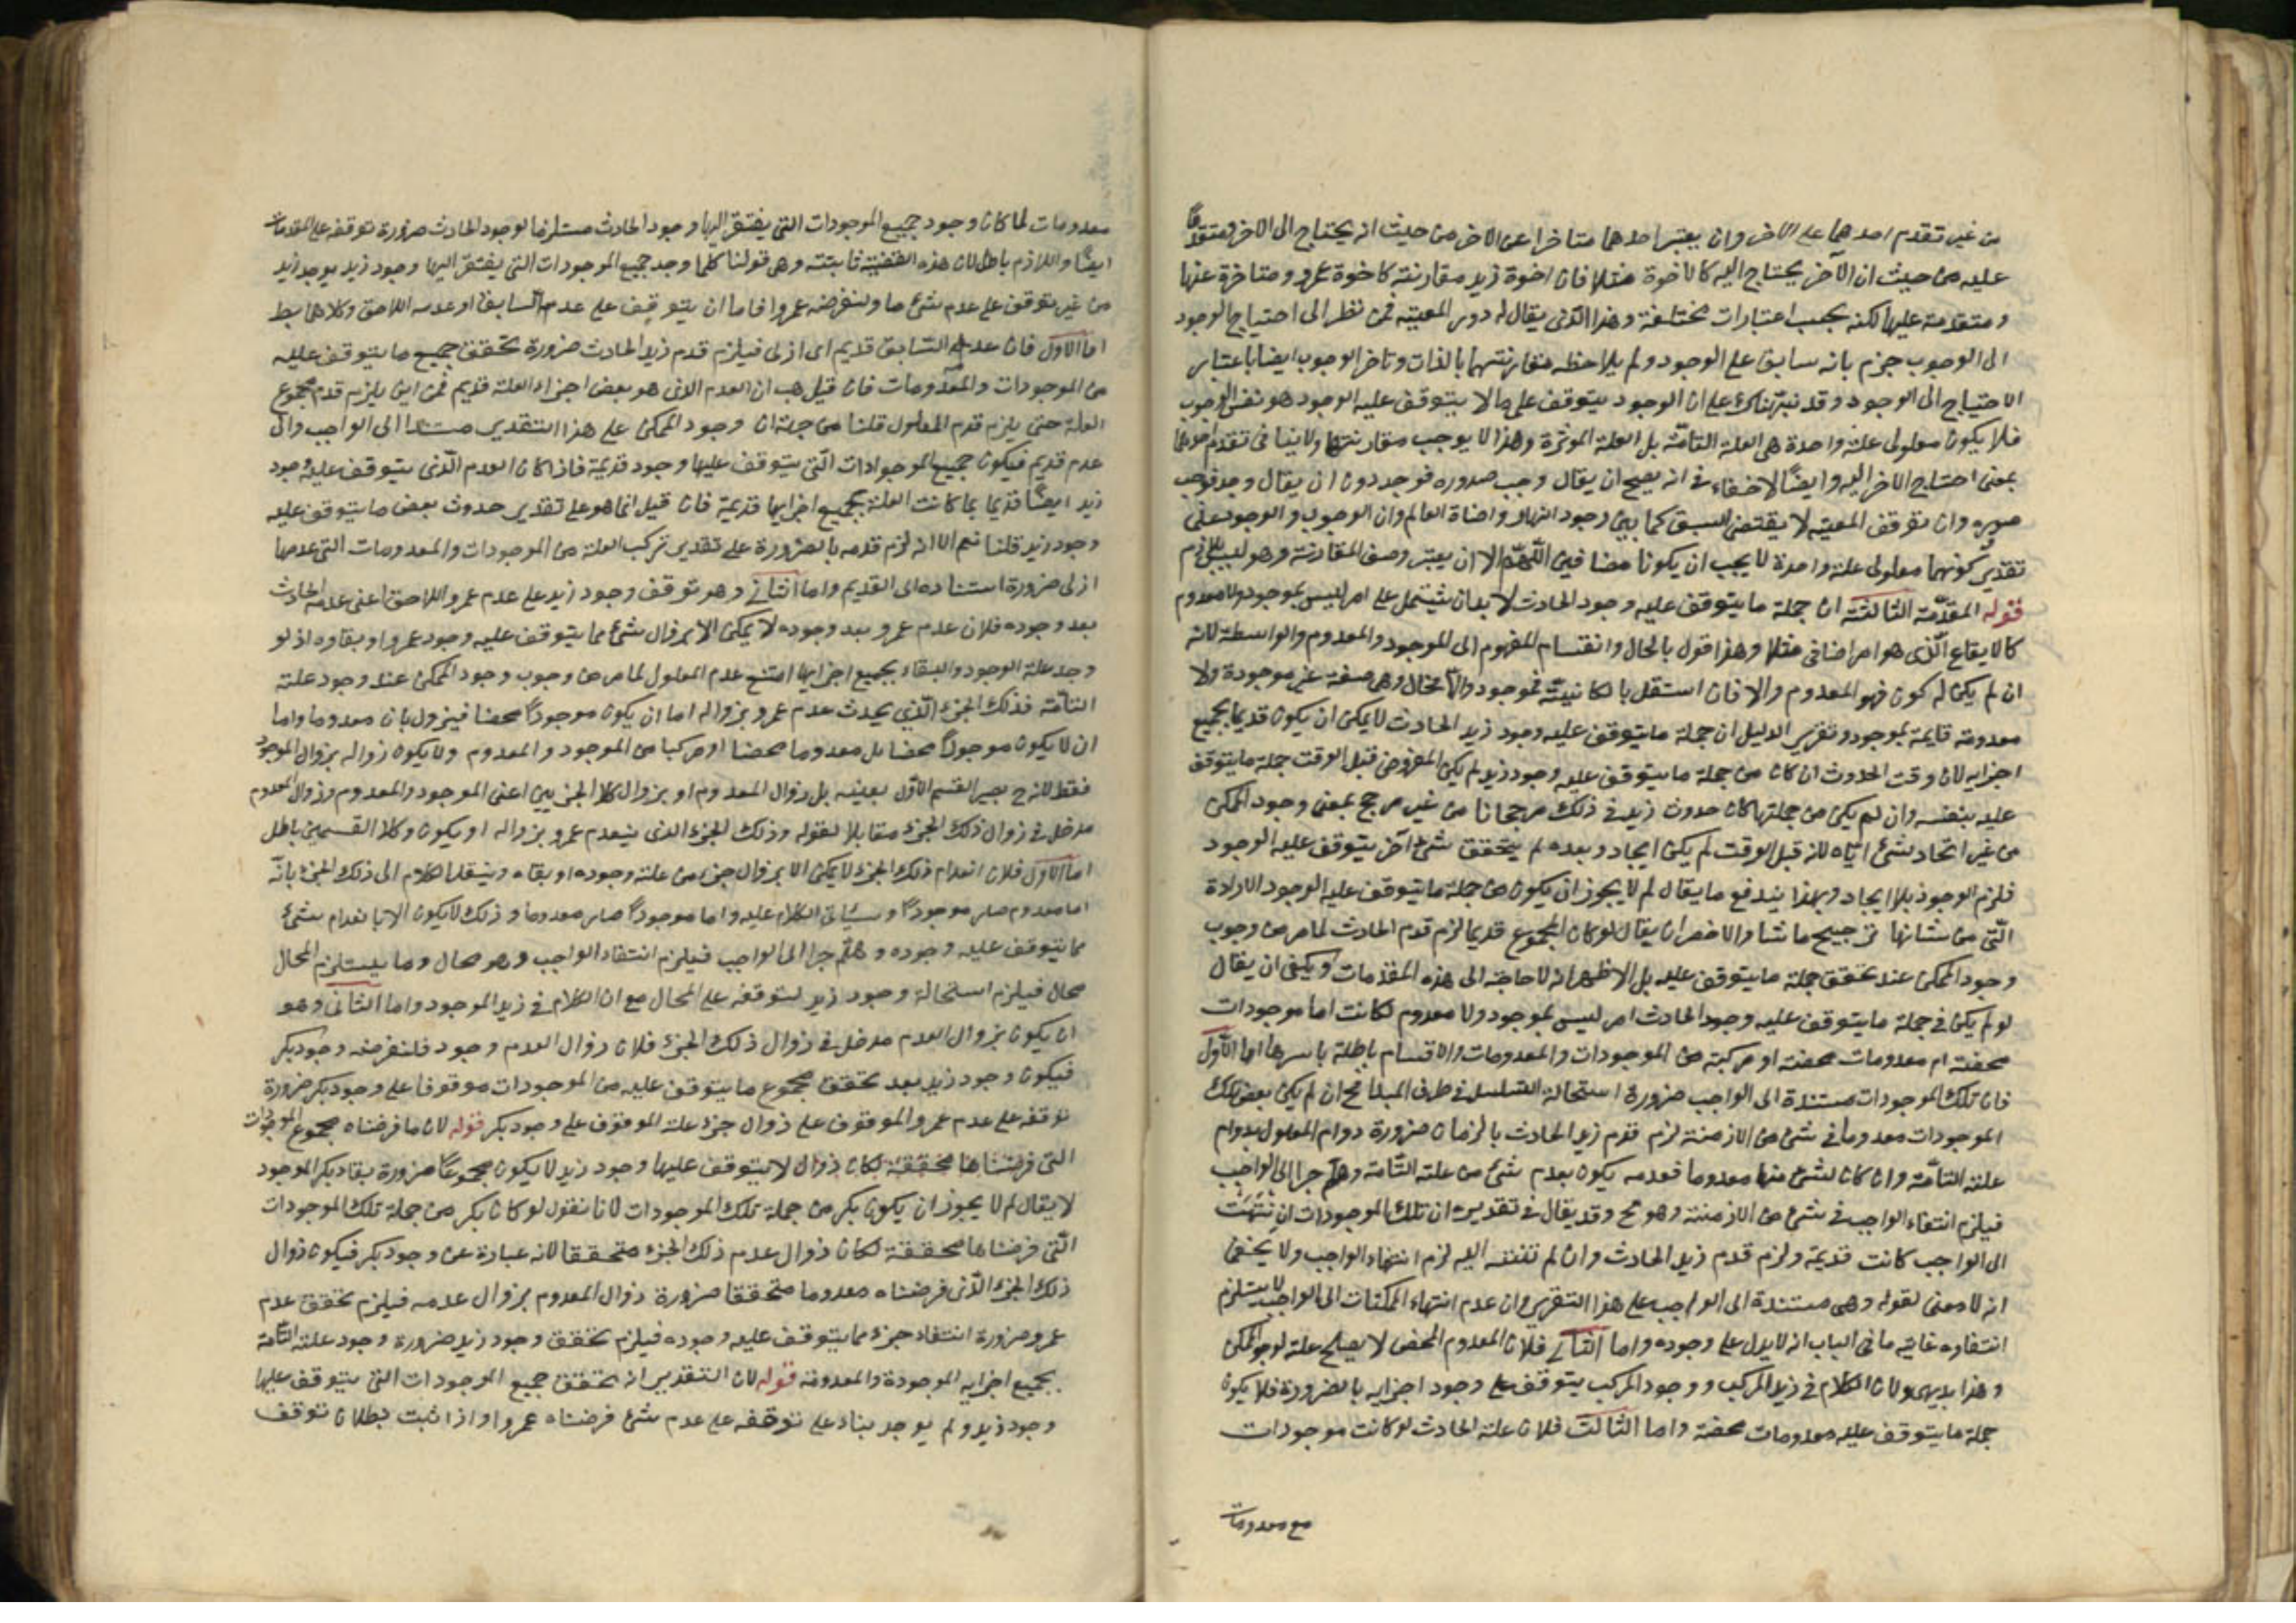 من غير تقدم احدهما على الاخر وان يعتبر احدهما متاخرا عن الاخر من حيث انه يحتاج الى الاخر ومتقدما
عليه من حيث ان الآخر يحتاج اليه كالاخوة مثلا فان اخوة زيد مقارنة كاخوة عمرو ومتاخرة عنها
ومتقدمة عليها لكنه بحسب اعتبارات مختلفة وهذا الذى يقال له دور المعية فمن نظر الى احتياج الوجود
الى الوجوب جزم بانه سابق على الوجود ولم يلاحظ مقارنتهما بالذات وتاخر الوجوب ايضا باعتبار
الاحتياج الى الوجود وقد نبهناك على ان الوجود يتوقف على ما لا يتوقف عليه الوجود هو نفس الوجوب
فلا يكون معلولى علة واحدة هى العلة التامّة بل العلة الموثرة وهذا لا يوجب مقارنتهما ولا ينافى تقدم احدهما
بمعنى احتياج الاخر اليه وايضًا لا خفاء فى انه يصح ان يقال وجب صدوره فوجد دون ان يقال وجد فوجب
صدوره وان توقف المعية لا يقتضى السبق كما بين وجود النهار واضاة العالم وان الوجوب والوجود على
تقدير كونهما معلولى علة واحدة لا يجب ان يكونا متضايفين اللّهمّ الا ان يعتبر وصف المقارنة وهو ليس بلازم
قوله المقدّمة الثالثة ان جملة ما يتوقف عليه وجود الحادث لا بد ان يشتمل على امر ليس بموجود ولا معدوم
كالايقاع الّذى هو امر اضافى مثلا وهذا قول بالحال وانقسام المفهوم الى الموجود والمعدوم والواسطة لانه
ان لم يكن له كون فهو المعدوم والا فان استقل بالكائنيّة فموجود والا فحال وهى صفة غير موجودة ولا
معدومة قايمة بموجود وتقرير الدليل ان جملة ما يتوقف عليه وجود زيد الحادث لا يمكن ان يكون قديما بجميع
اجزايه لان وقت الحدوث ان كان من جملة ما يتوقف عليه وجود زيد لم يكن المفروض قبل الوقت جملة ما يتوقف
عليه بنفسه وان لم يكن من جملتها كان حدوث زيد فى ذلك مرجحانا من غير مرجح بمعنى وجود الممكن
من غير اتحاد شئ ايّاه لانه قبل الوقت لم يكن ايجاد وبعده لم يتحقق شئ آخر يتوقف عليه الوجود
فلزم الوجود بلا ايجاد وبهذا يندفع ما يقال لم لا يجوز ان يكون من جملة ما يتوقف عليه الوجود الارادة
الّتى من شانها ترجيح ما شا والاخصر ان يقال لو كان المجموع قديما لزم قدم الحادث لما مر من وجوب
وجود الممكن عند تحقق جملة ما يتوقف عليه بل الاظهر انه لا حاجة الى هذه المقدمات ويكفى ان يقال
لو لم يكن فى جملة ما يتوقف عليه وجود الحادث امر ليس بموجود ولا معدوم لكانت اما موجودات
محضة ام معدومات محضة او مركبة من الموجودات والمعدومات والاقسام باطلة باسرها اما الاول
فان تلك الموجودات مستندة الى الواجب ضرورة استحالة التسلسل فى طرف المبدا فح ان لم يكن بعض تلك
الموجودات معدوما فى شئ من الازمنة لزم قدم زيد الحادث بالزمان ضرورة دوام المعلول بدوام
علته التامّة وان كان لشئ منها معدوما فعدمه يكون بعدم شئ من علته التّامة وهلم جرا الى الواجب
فيلزم انتفاء الواجب فى شئ من الازمنة وهو مح وقد يقال فى تقديره ان تلك الموجودات ان انتهت
الى الواجب كانت قديمة ولزم قدم زيد الحادث وان لم تنته اليه لزم انتهاء الواجب ولا يخفى
انه لا معنى لقوله وهى مستندة الى الواجب على هذا التقرير وان عدم انتهاء الممكنات الى الواجب لا يستلزم
انتفاؤه غايته ما فى الباب انه لا يدل على وجوده واما الثانى فلان المعدوم المحض لا يصلح علة لوجود الممكن
وهذا بديهى ولان الكلام فى زيد المركب ووجود المركب يتوقف على وجود اجزايه بالضرورة فلا يكون
جملة ما يتوقف عليه معدومات محضة واما الثالث فلان علة الحادث لو كانت موجودات
مع معدومات
معدومات لما كان وجود جميع الموجودات التى يفتقر اليها وجود الحادث مستلزما لوجود الحادث ضرورة توقفه على المعدومات
ايضًا واللازم باطل لان هذه القضية ثابتة وهى قولنا كلما وجد جميع الموجودات التى يفتقر اليها وجود زيد يوجد زيد
من غير توقف على عدم شئ ما ولنفرضه عمروا فاما ان يتوقف على عدمه السابق او عدمه اللاحق وكلاهما بط
اما الاول فلان عدمه السابق قديم اى ازلى فيلزم قدم زيد الحادث ضرورة تحقق جميع ما يتوقف عليه
من الموجودات والمعدومات فان قيل هب ان العدم الذى هو بعض اجزاء العلة قديم فمن اين يلزم قدم مجموع
العلة حتى يلزم قدم المعلول قلنا من جهة ان وجود الممكن على هذا التقدير مستندا الى الواجب والى
عدم قديم فيكون جميع الموجودات الّتى يتوقف عليها وجود قديمة فاذا كان العدم الّذى يتوقف عليه وجود
زيد ايضًا قديما بما كانت العلة بجميع اجزايها قديمة فان قيل انما هو على تقدير حدوث بعض ما يتوقف عليه
وجود زيد قلنا نعم الا انه لزم قدمه بالضرورة على تقدير تركب العلة من الموجودات والمعدومات التى عدمها
ازلى ضرورة استناده الى القديم واما الثانى وهو توقف وجود زيد على عدم عمرو اللاحق اعنى عدمه الحادث
بعد وجوده فلان عدم عمرو بعد وجوده لا يمكن الا بزوال شئ مما يتوقف عليه وجود عمرو او بقاوه اذ لو
وجد علة الوجود والبقاء بجميع اجزايها امتنع عدم المعلول لما مر من وجوب وجود الممكن عند وجود علته
التامّة فذلك الجزء الّذى يحدث عدم عمرو بزواله اما ان يكون موجودًا محضا فيزول بان معدوما واما
ان لا يكون موجودًا محضا بل معدوما محضا او مركبا من الموجود والمعدوم ولا يكون زواله بزوال الموجود
فقط لانه ح يصير القسم الاوّل بعينه بل زوال المعدوم او بزوال كلا الجزيين اعنى الموجود والمعدوم وزوال المعدوم
مدخل فى زوال ذلك الجزء مقابلا لقوله وذلك الجزء الذى ينعدم عمرو بزواله او يكون وكلا القسمين باطل
اما الاوّل فلان انعدام ذلك الجزء لا يمكن الا بزوال جزء من علة وجوده او بقاه وينقل الكلام الى ذلك الجزء بانّه
اما معدوم صار موجودًا وسيأتى الكلام عليه واما موجودًا صار معدوما وذلك لا يكون الا بانعدام شئ
مما يتوقف عليه وجوده وهلّم جرا الى الواجب فيلزم انتفاء الواجب وهو محال وما يستلزم المحال
محال فيلزم استحالة وجود زيد لتوقفه على المحال مع ان الكلام فى زيد الموجود واما الثانى وهو
ان يكون بزوال العدم مدخل فى زوال ذلك الجزء فلان زوال العدم وجود فلنفرضه وجود بكر
فيكون وجود زيد بعد تحقق مجموع ما يتوقف عليه من الموجودات موقوفا على وجود بكر ضرورة
توقفه على عدم عمرو الموقوف على زوال جزء علته الموقوف على وجود بكر قوله لان ما فرضناه مجموع الموجودات
التى فرضناها متحققة لكان زوال لا يتوقف عليها وجود زيد لا يكون مجموعًا ضرورة بقاء بكر الموجود
لا يقال لم لا يجوز ان يكون بكر من جملة تلك الموجودات لانا نقول لو كان بكر من جملة تلك الموجودات
الّتى فرضناها محققة لكان زوال عدم ذلك الجزء متحققا لانه عبارة عن وجود بكر فيكون زوال
ذلك الجزء الّذى فرضناه معدوما متحققا ضرورة زوال المعدوم بزوال عدمه فيلزم تحقق عدم
عمرو ضرورة انتفاء جزء مما يتوقف عليه وجوده فيلزم تحقق وجود زيد ضرورة وجود علته التّامة
بجميع اجزايه الموجودة والمعدومة قوله لان التقدير انه تحقق جميع الموجودات التى يتوقف عليها
وجود زيد ولم يوجد بناء على توقفه على عدم شئ فرضناه عمروا واذا ثبت بطلان توقف